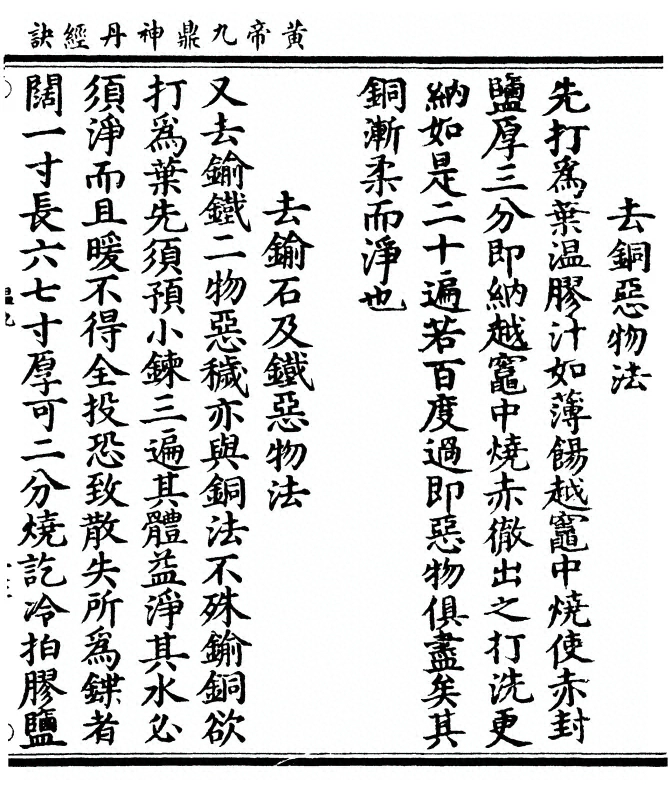 黃帝九鼎神丹經訣
去銅惡物法
先打爲葉温膠汁如薄餳越竈中燒使赤封
鹽厚三分即納越竈中燒赤徹出之打洗更
納如是二十遍若百度過即惡物俱盡矣其
銅漸柔而淨也
去鍮石及鐵惡物法
又去鍮鐵二物惡穢亦與銅法不殊鍮銅欲
打爲葉先須預小鍊三遍其體益淨其水必
須淨而且暖不得全投恐致散失所爲鍱者
闊一寸長六七寸厚可二分燒訖冷拍膠鹽